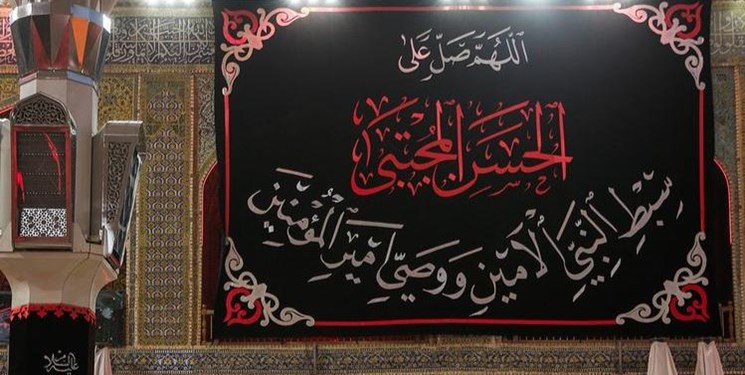 اللّهُمَّ صَلِّ عَلى
الحَسَنِ المُجتَبى
سِبطِ النَّبِيِّ الأَمينِ وَوَصِيِّ أَميرِ المُؤمِنينَ